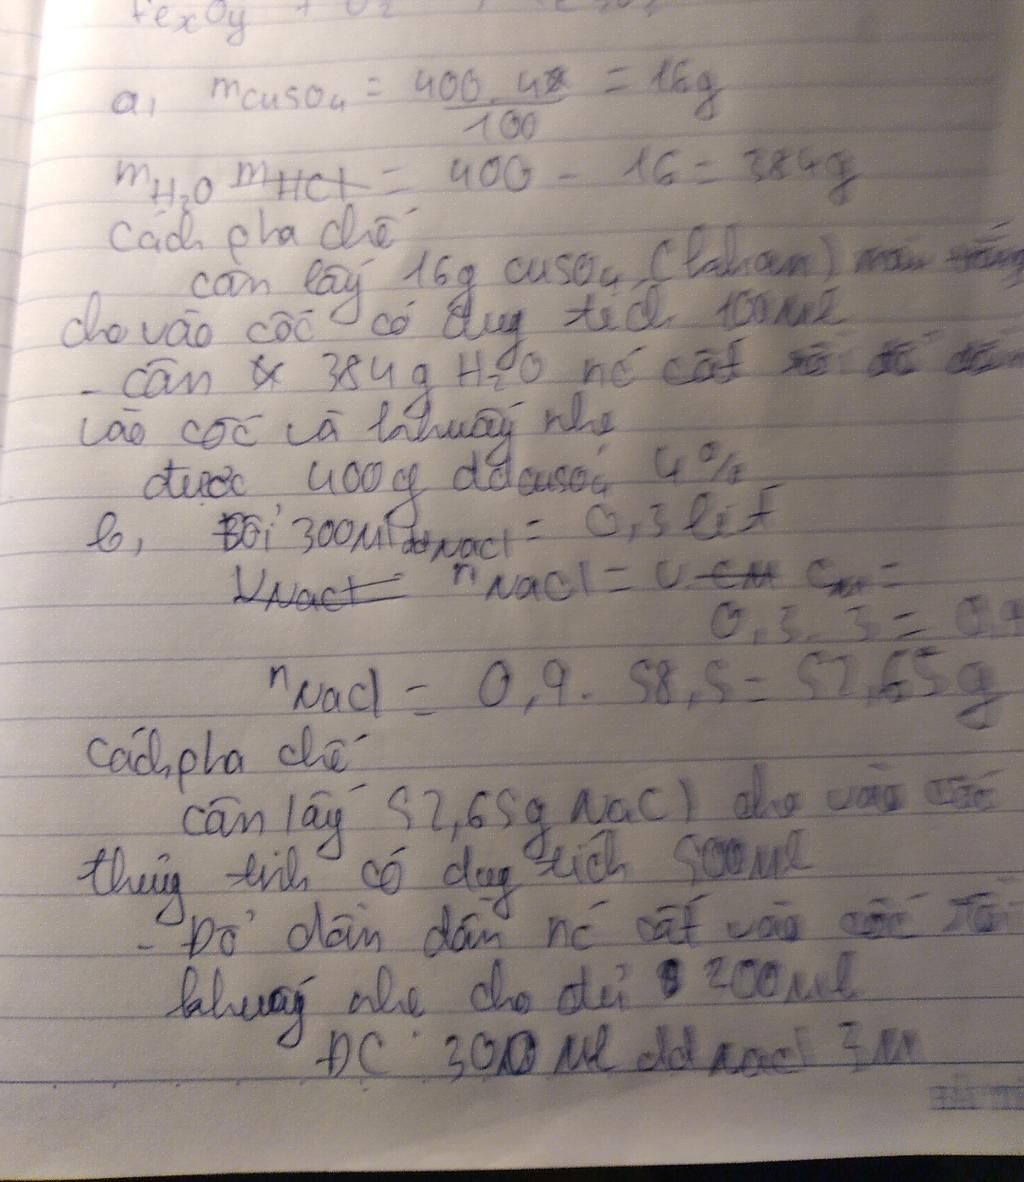 FexOy + O2
a, mCuSO4 = 400.4 / 100 = 16g
mH2O mHCl = 400 - 16 = 384g
Cách pha chế
cân lấy 16g CuSO4 (khan) màu trắng
cho vào cốc có dug tích 100ml
- Cân 384g H2O nc cất rồi đổ dần
vào cốc và khuấy nhẹ
được 400g dd CuSO4 4%
b, Đổi 300ml ddNaCl = 0,3 lít
VNaCl = nNaCl = V CM CM =
0,3.3 = 0,9
nNaCl = 0,9.58,5 = 52,65g
Cách pha chế
cân lấy 52,65g NaCl cho vào cốc
thủy tinh có dug tích 500ml
- Đổ dần dần nc cất vào cốc rồi
khuấy nhẹ cho đủ 200ml
ĐC 300ml dd NaCl 3M